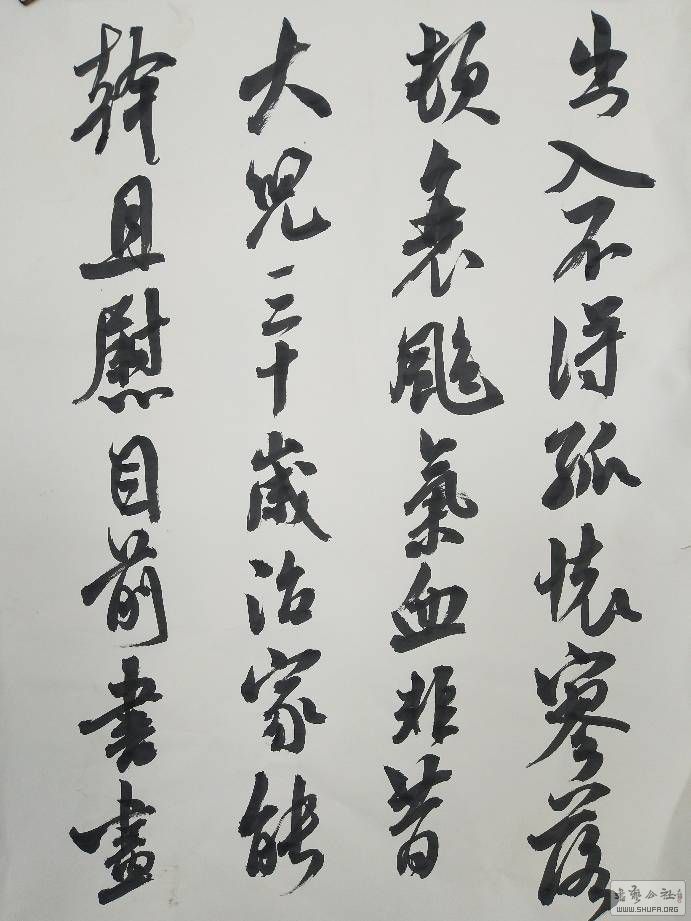 出入不得孤懷寥落
頓衰颮氣血非昔
大兒三十歲治家能
幹且慰目前書畫
書藝公社
WWW.SHUFA.ORG